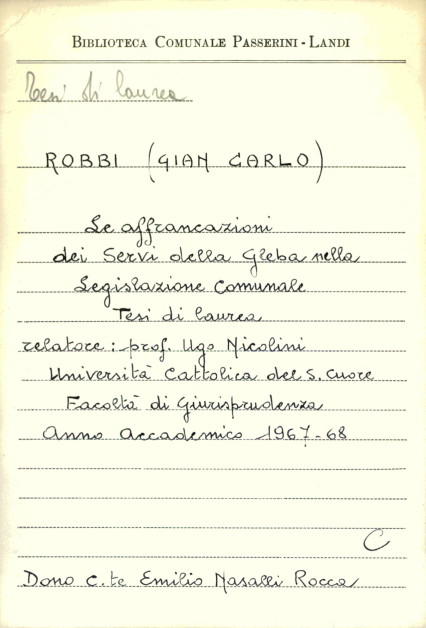 BIBLIOTECA COMUNALE PASSERINI - LANDI
Tesi di laurea
ROBBI (GIAN CARLO)
Le affrancazioni
dei Servi della Gleba nella
Legislazione Comunale
Tesi di laurea
relatore: prof. Ugo Nicolini
Università Cattolica del S. Cuore
Facoltà di Giurisprudenza
Anno Accademico 1967-68
C
Dono C.te Emilio Nasalli Rocca